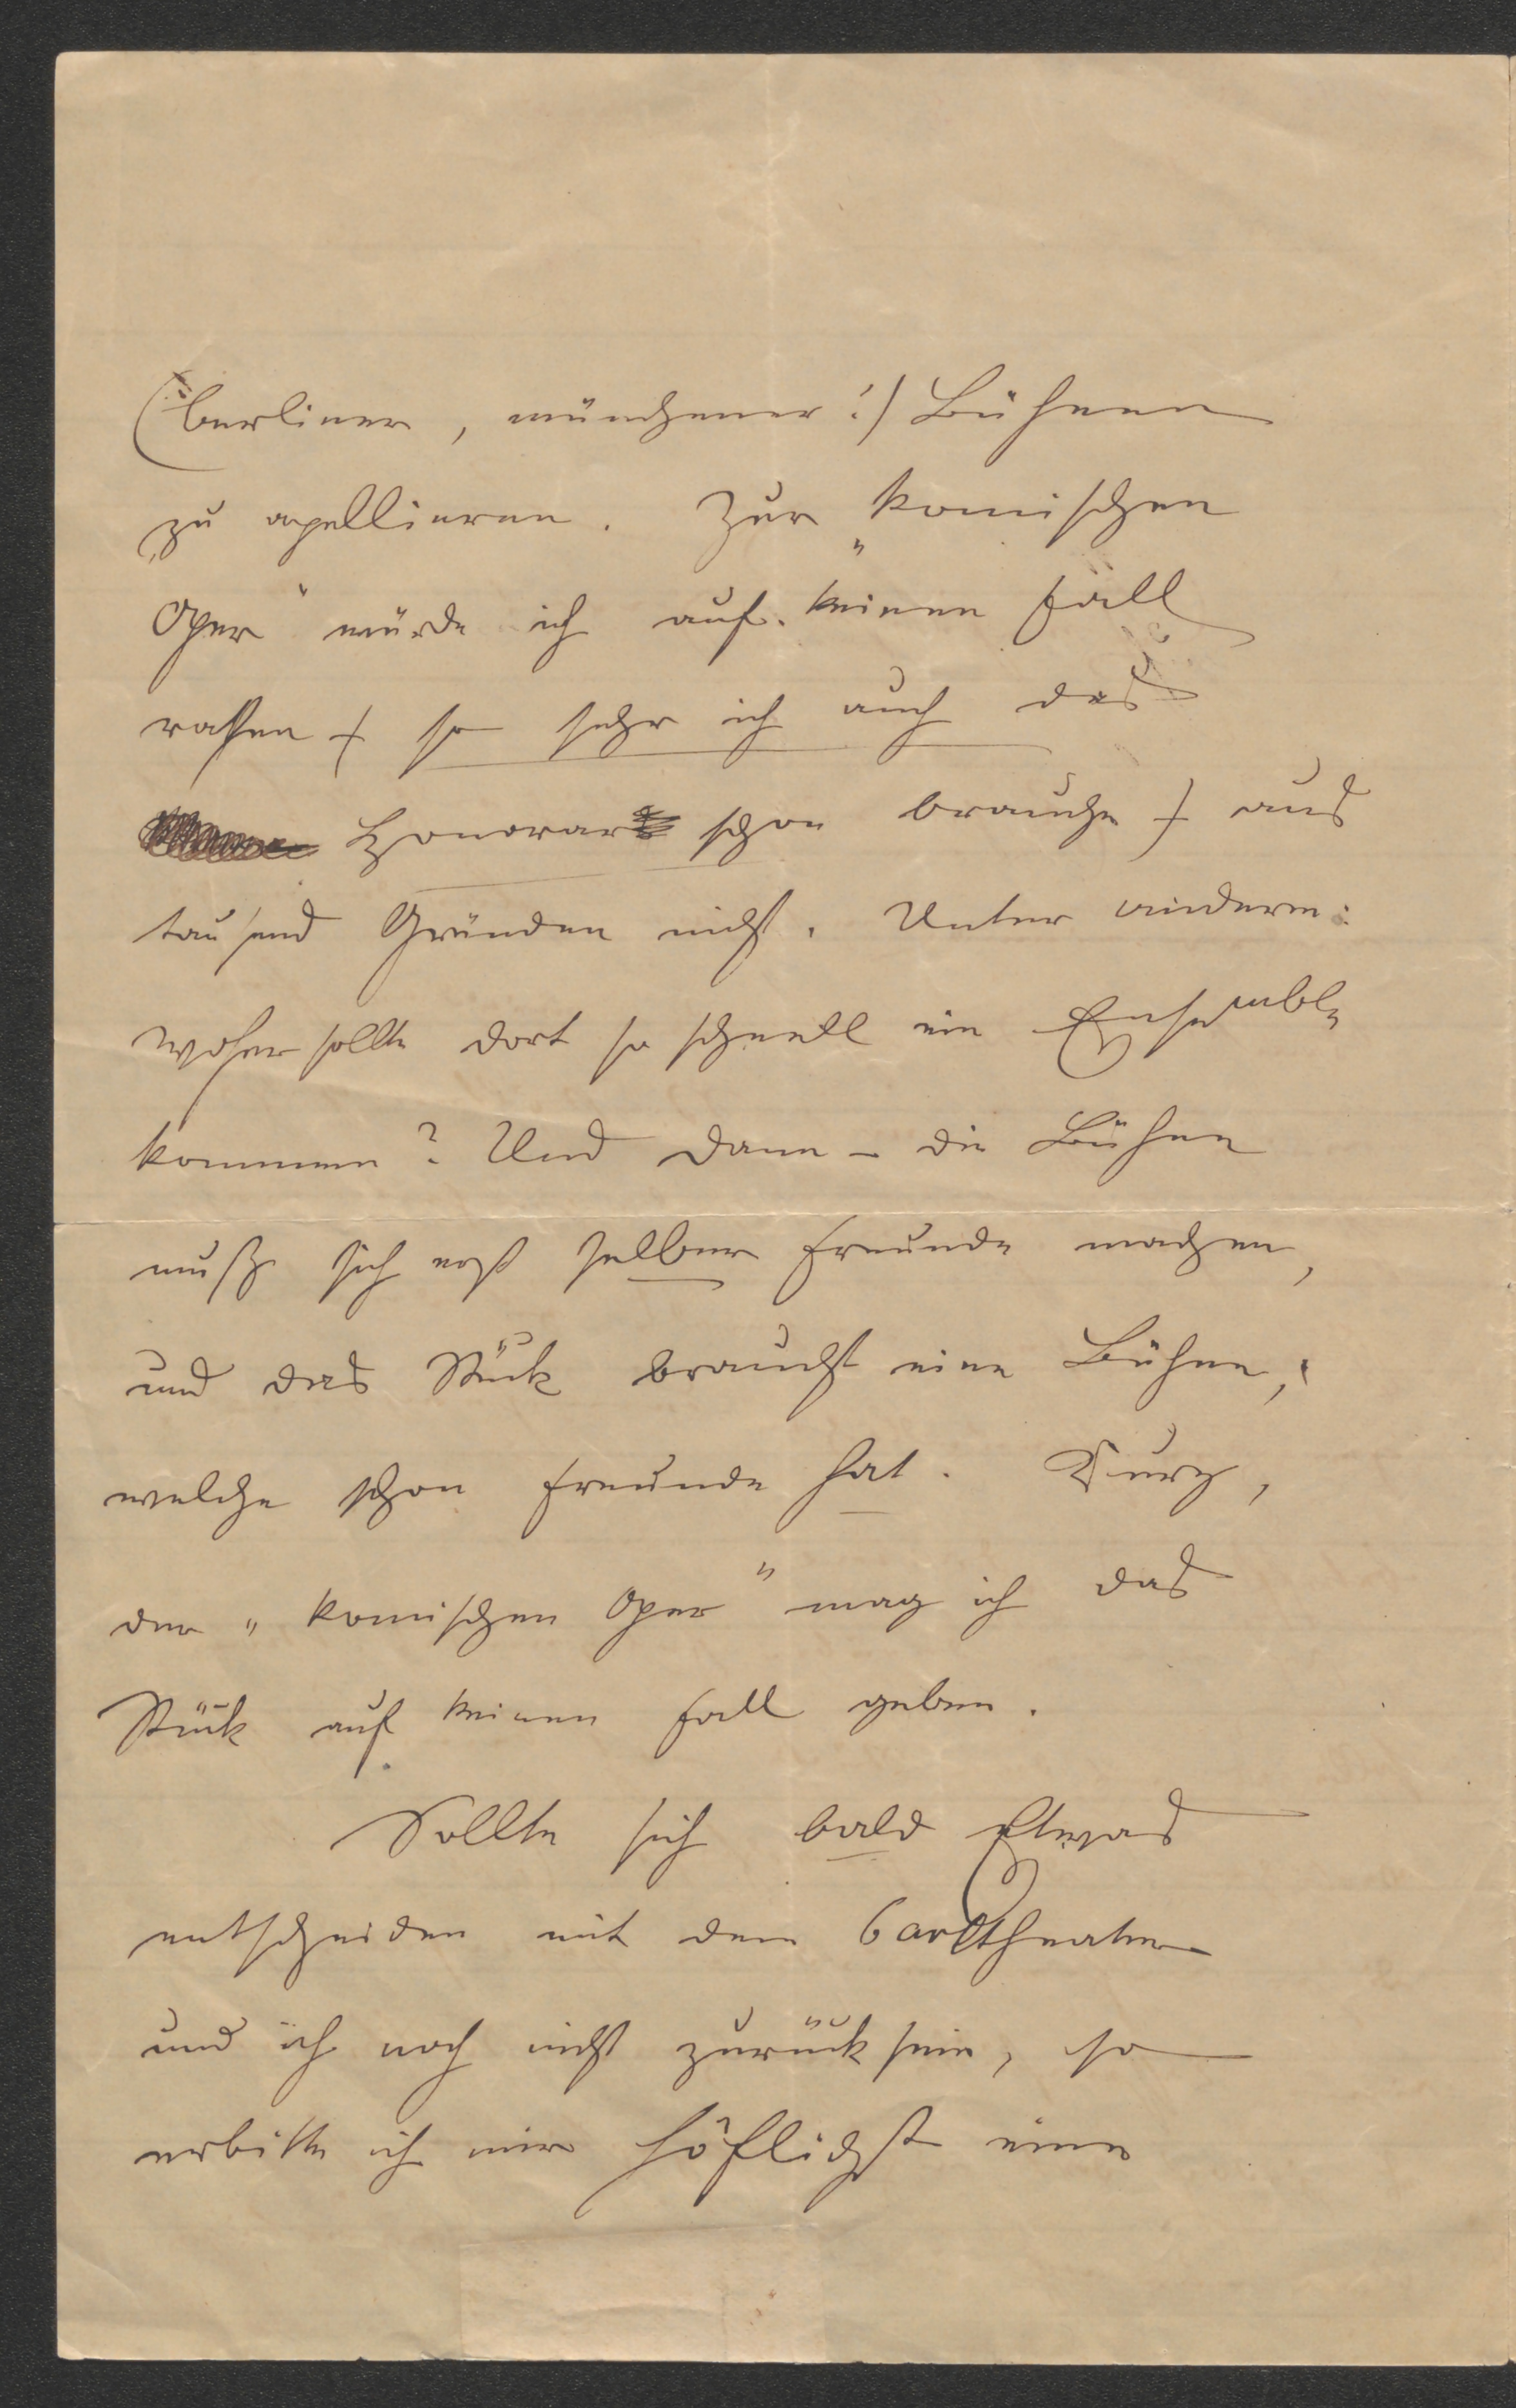 (berliner, münchener!) Bühnen
zu apellieren. Zur „komischen
Oper" würde ich auf keinen Fall
rathen (so sehr ich auch das
Honorar schon brauche) aus
tausend Gründen nicht. Unter anderem:
woher sollte dort so schnell ein Ensemble
kommen? Und dann – die Bühne
muß sich erst selber Freunde machen,
und das Stück braucht eine Bühne,
welche schon Freunde hat. Kurz,
der „komischen Oper" mag ich das
Stück auf keinen Fall geben.
Sollte sich bald Etwas
entscheiden mit dem Carltheater
und ich noch nicht zurück sein, so
erbitte ich mir höflichst eine